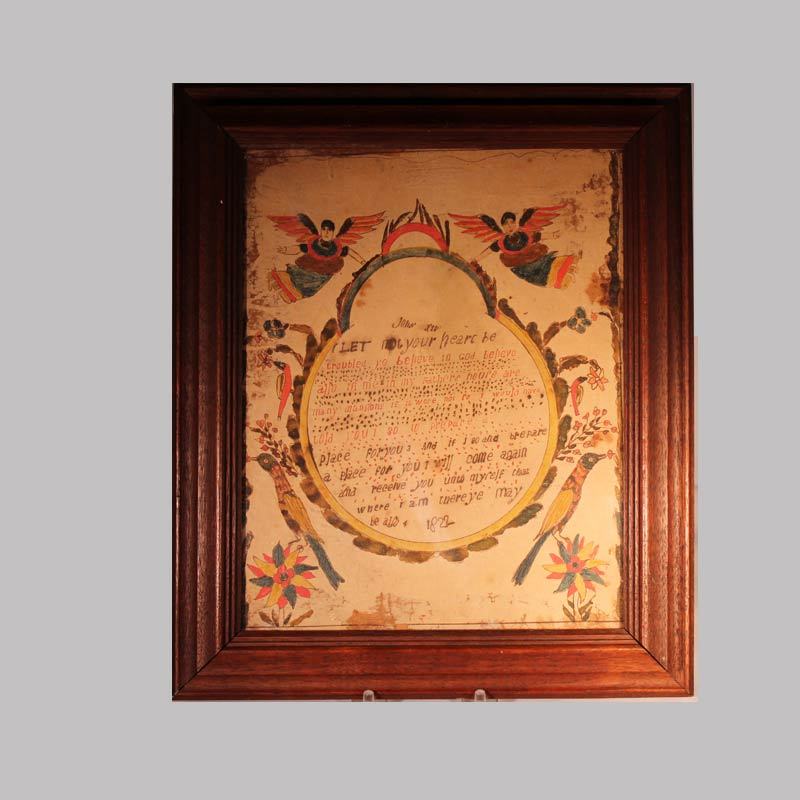 John xiv
LET not your heart be
troubled, ye believe in God believe
also in me in my
many mansions if it were not so I would have
told you I go to prepare a
place for you 3 and if I go and prepare
a place for you I will come again
and receive you unto myself that
where i am there ye may
be also 4 1822